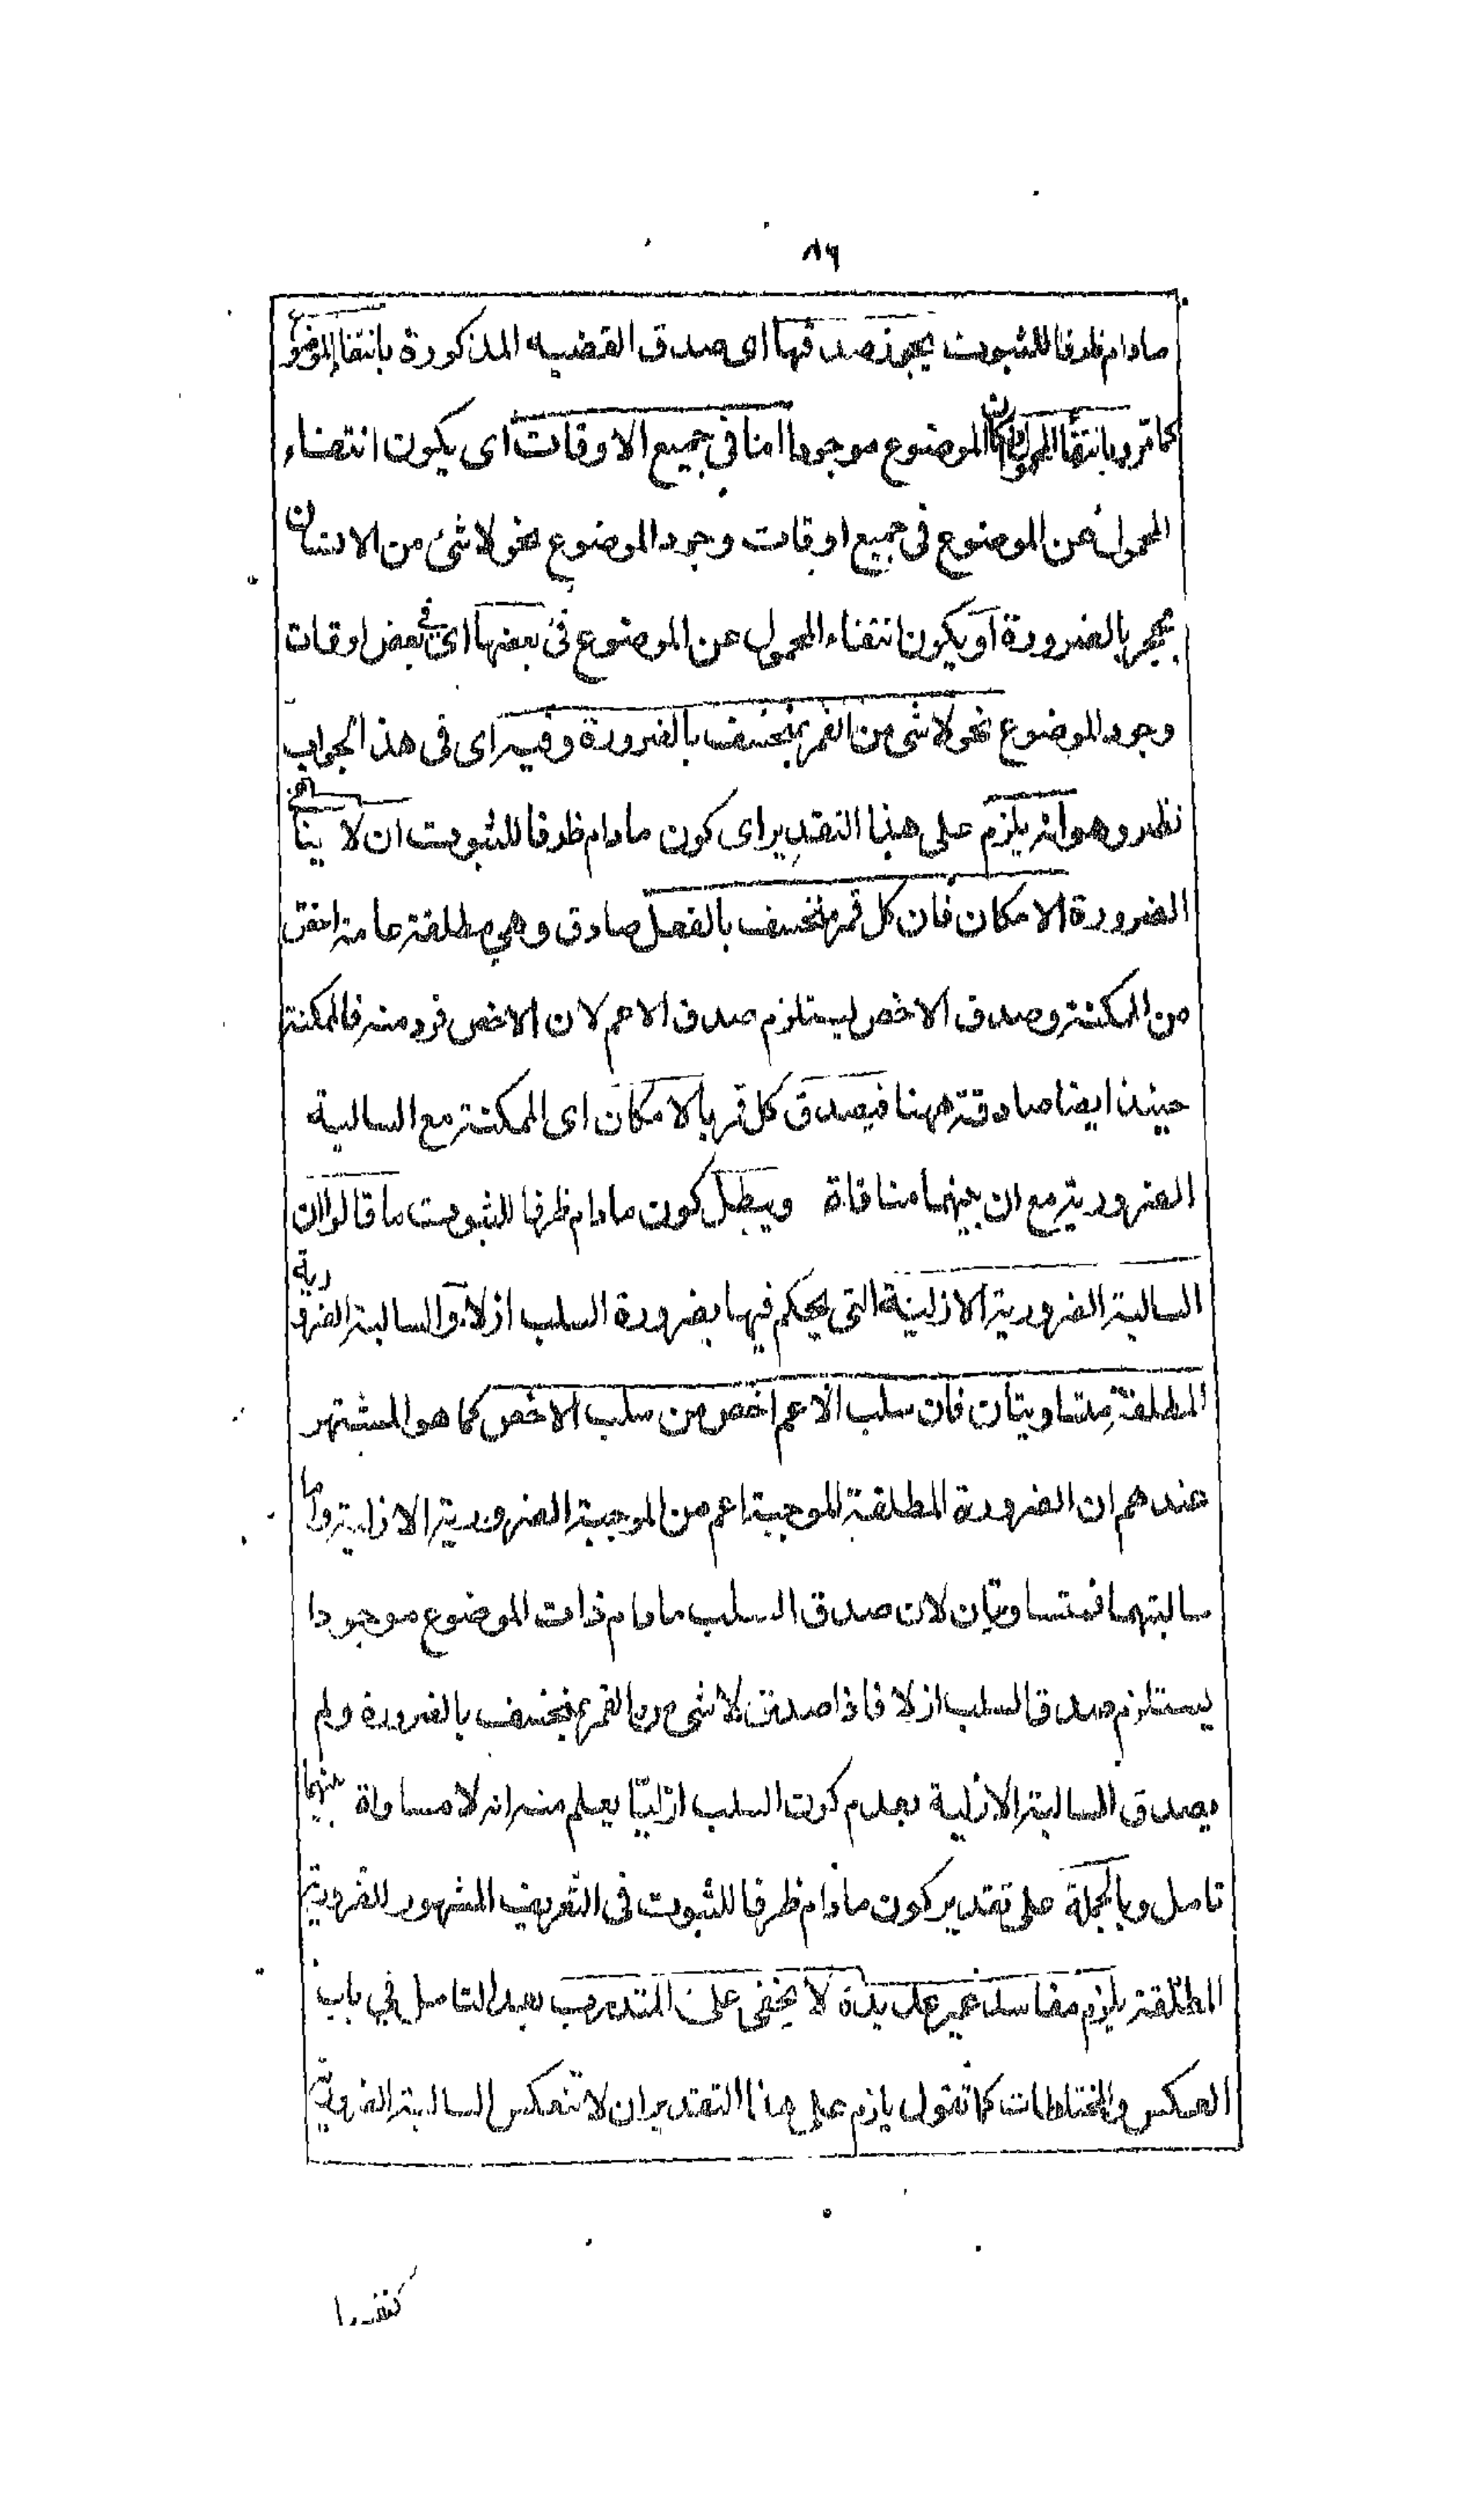 ٨٩
مادام ظرفا للثبوت يجوز صدقها اى صدق القضيه المذكورة بانتفاء الموضوع
كما تررد بانتفاء المحمول وان كان الموضوع موجودا اما فى جميع الاوقات اى يكون انتفاء
المحمول عن الموضوع فى جميع اوقات وجود الموضوع نحو لا شئ من الانسان
بحجر بالضرورة او يكون انتفاء المحمول عن الموضوع فى بعضها اى فى بعض اوقات
وجود الموضوع نحو لا شى من القمر بمنخسف بالضرورة وفيه اى فى هذا الجواب
نظر وهو انه يلزم على هذا التقدير اى كون مادام ظرفا للثبوت ان لا ينافى
الضرورة الامكان فان كل قمر منخسف بالفعل صادق وهى مطلقة عامة اخص
من الممكنة وصدق الاخص يستلزم صدق الاعم لان الاخص فرد منه فالممكنة
حينئذ ايضا صادقة ههنا فيصدق كل قمر بالامكان اى الممكنة مع السالبة
الضرورية مع ان بينهما منافاة ويبطل كون مادام ظرفا للثبوت ما قالوا ان
السالبة الضرورية الازلية التى يحكم فيها بضرورة السلب ازلا والسالبة الضرورية
المطلقة متساويتان فان سلب الاعم اخص من سلب الاخص كما هو المشتهر
عندهم ان الضرورة المطلقة الموجبة اعم من الموجبة الضرورية الازلية واما
سالبتهما فمتساويتان لان صدق السلب مادام ذات الموضوع موجودا
يستلزم صدق السلب ازلا فاذا صدق لا شى من القمر بمنخسف بالضرورة ولم
يصدق السالبة الازلية بعدم كون السلب ازليا يعلم منه انه لا مساواة بينهما
تامل وبالجملة على تقدير كون مادام ظرفا للثبوت فى التعريف المشهور للضرورية
المطلقة يلزم مفاسد غير عديدة لا يخفى على المتدرب بعد التامل في باب
العكس والمختلطات كما تقول يلزم على هذا التقدير ان لا تنعكس السالبة الضرورية
كنفسها